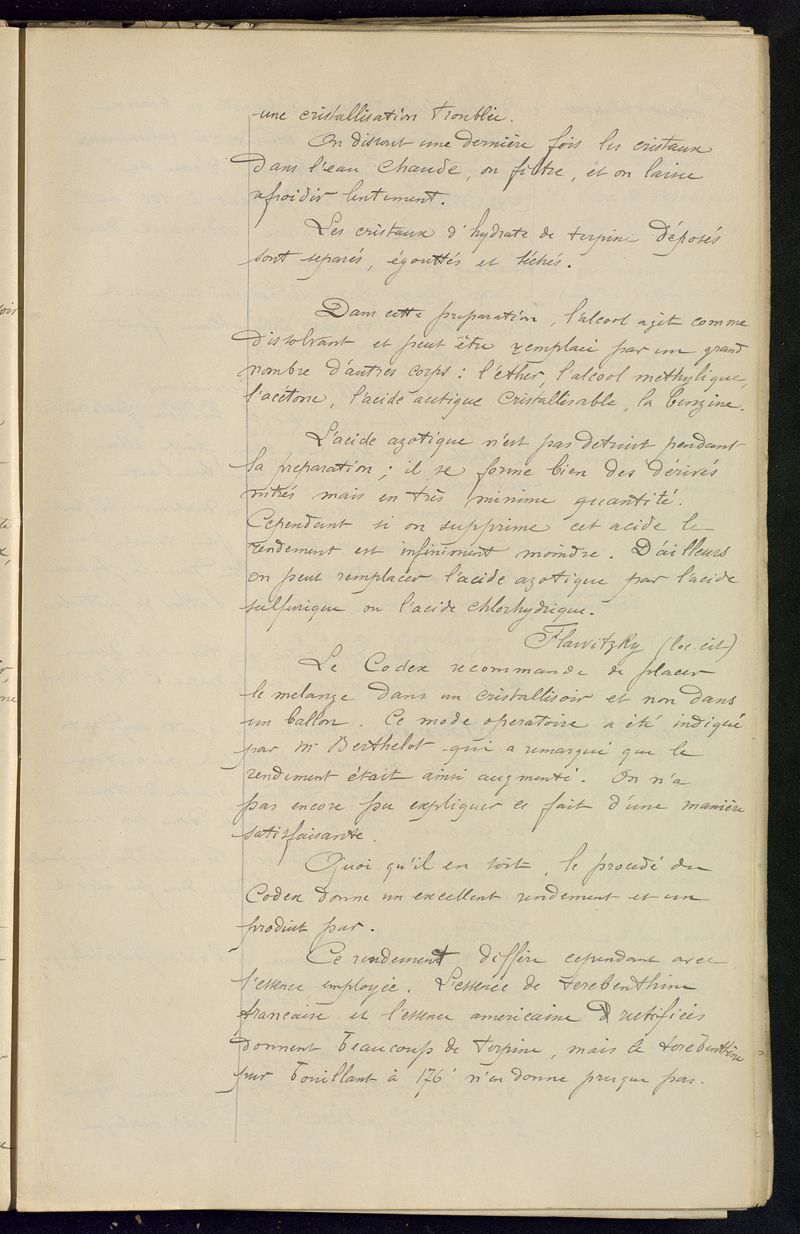 une cristallisation troublée.
On dissout une dernière fois les cristaux
dans l'eau chaude, on filtre, et on laisse
refroidir lentement.
Les cristaux d'hydrate de terpine déposés
sont separés, égouttés et séchés.
Dans cette preparation, l'alcool agit comme
dissolvant et peut être remplacé par un grand
nombre d'autres corps: l'éther, l'alcool methylique,
l'acétone, l'acide acétique cristallisable, la benzine.
L'acide azotique n'est pas detruit pendant
la preparation; il se forme bien des dérivés
nitrés mais en très minime quantité.
Cependant si on supprime cet acide le
rendement est infiniment moindre. D'ailleurs
on peut remplacer l'acide azotique par l'acide
sulfurique ou l'acide chlorhydrique.
Flawitzky (loc. cit)
Le Codex recommande de placer
le melange dans un cristallisoir et non dans
un ballon. Ce mode operatoire a été indiqué
par Mr Berthelot qui a remarqué que le
rendement était ainsi augmenté. On n'a
pas encore pu expliquer ce fait d'une manière
satisfaisante.
Quoi qu'il en soit, le procédé du
Codex donne un excellent rendement et un
produit pur.
Ce rendement diffère cependant avec
l'essence employée. L'essence de terebenthine
francaise et l'essence americaine rectifiées
donnent beaucoup de terpine, mais le terebenthène
pur bouillant à 176° n'en donne presque pas.